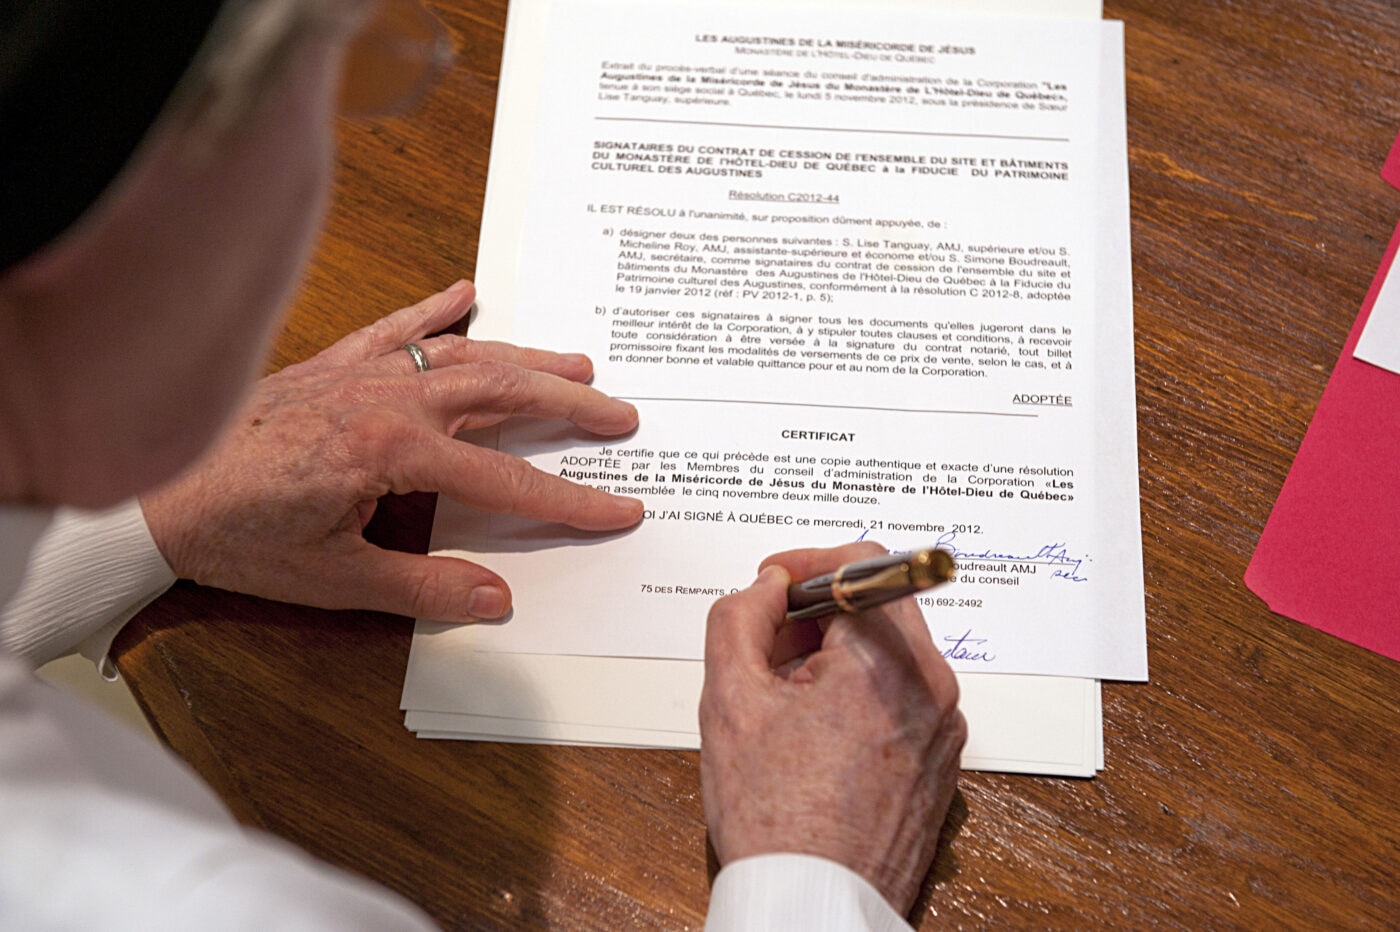 LES AUGUSTINES DE LA MISÉRICORDE DE JÉSUS
MONASTÈRE DE L'HÔTEL-DIEU DE QUÉBEC
Extrait du procès-verbal d'une séance du conseil d'administration de la Corporation "Les
Augustines de la Miséricorde de Jésus du Monastère de L'Hôtel-Dieu de Québec»,
tenue à son siège social à Québec, le lundi 5 novembre 2012, sous la présidence de Sœur
Lise Tanguay, supérieure.
SIGNATAIRES DU CONTRAT DE CESSION DE l'ENSEMBLE DU SITE ET BÂTIMENTS
DU MONASTÈRE DE l'HÔTEL-DIEU DE QUÉBEC à la FIDUCIE DU PATRIMOINE
CULTUREL DES AUGUSTINES
Résolution C2012-44
IL EST RÉSOLU à l'unanimité, sur proposition dûment appuyée, de :
a) désigner deux des personnes suivantes : S. Lise Tanguay, AMJ, supérieure et/ou S.
Micheline Roy, AMJ, assistante-supérieure et économe et/ou S. Simone Boudreault,
AMJ, secrétaire, comme signataires du contrat de cession de l'ensemble du site et
bâtiments du Monastère des Augustines de l'Hôtel-Dieu de Québec à la Fiducie du
Patrimoine culturel des Augustines, conformément à la résolution C 2012-8, adoptée
le 19 janvier 2012 (réf : PV 2012-1, p. 5);
b) d'autoriser ces signataires à signer tous les documents qu'elles jugeront dans le
meilleur intérêt de la Corporation, à y stipuler toutes clauses et conditions, à recevoir
toute considération à être versée à la signature du contrat notarié, tout billet
promissoire fixant les modalités de versements de ce prix de vente, selon le cas, et à
en donner bonne et valable quittance pour et au nom de la Corporation.
ADOPTÉE
CERTIFICAT
Je certifie que ce qui précède est une copie authentique et exacte d'une résolution
ADOPTÉE par les Membres du conseil d'administration de la Corporation «Les
Augustines de la Miséricorde de Jésus du Monastère de l'Hôtel-Dieu de Québec»
en assemblée le cinq novembre deux mille douze.
OI J'AI SIGNÉ À QUÉBEC ce mercredi, 21 novembre 2012.
Boudreault Amj.
oudreault AMJ
sec
e du conseil
75 DES REMPARTS, Q
18) 692-2492